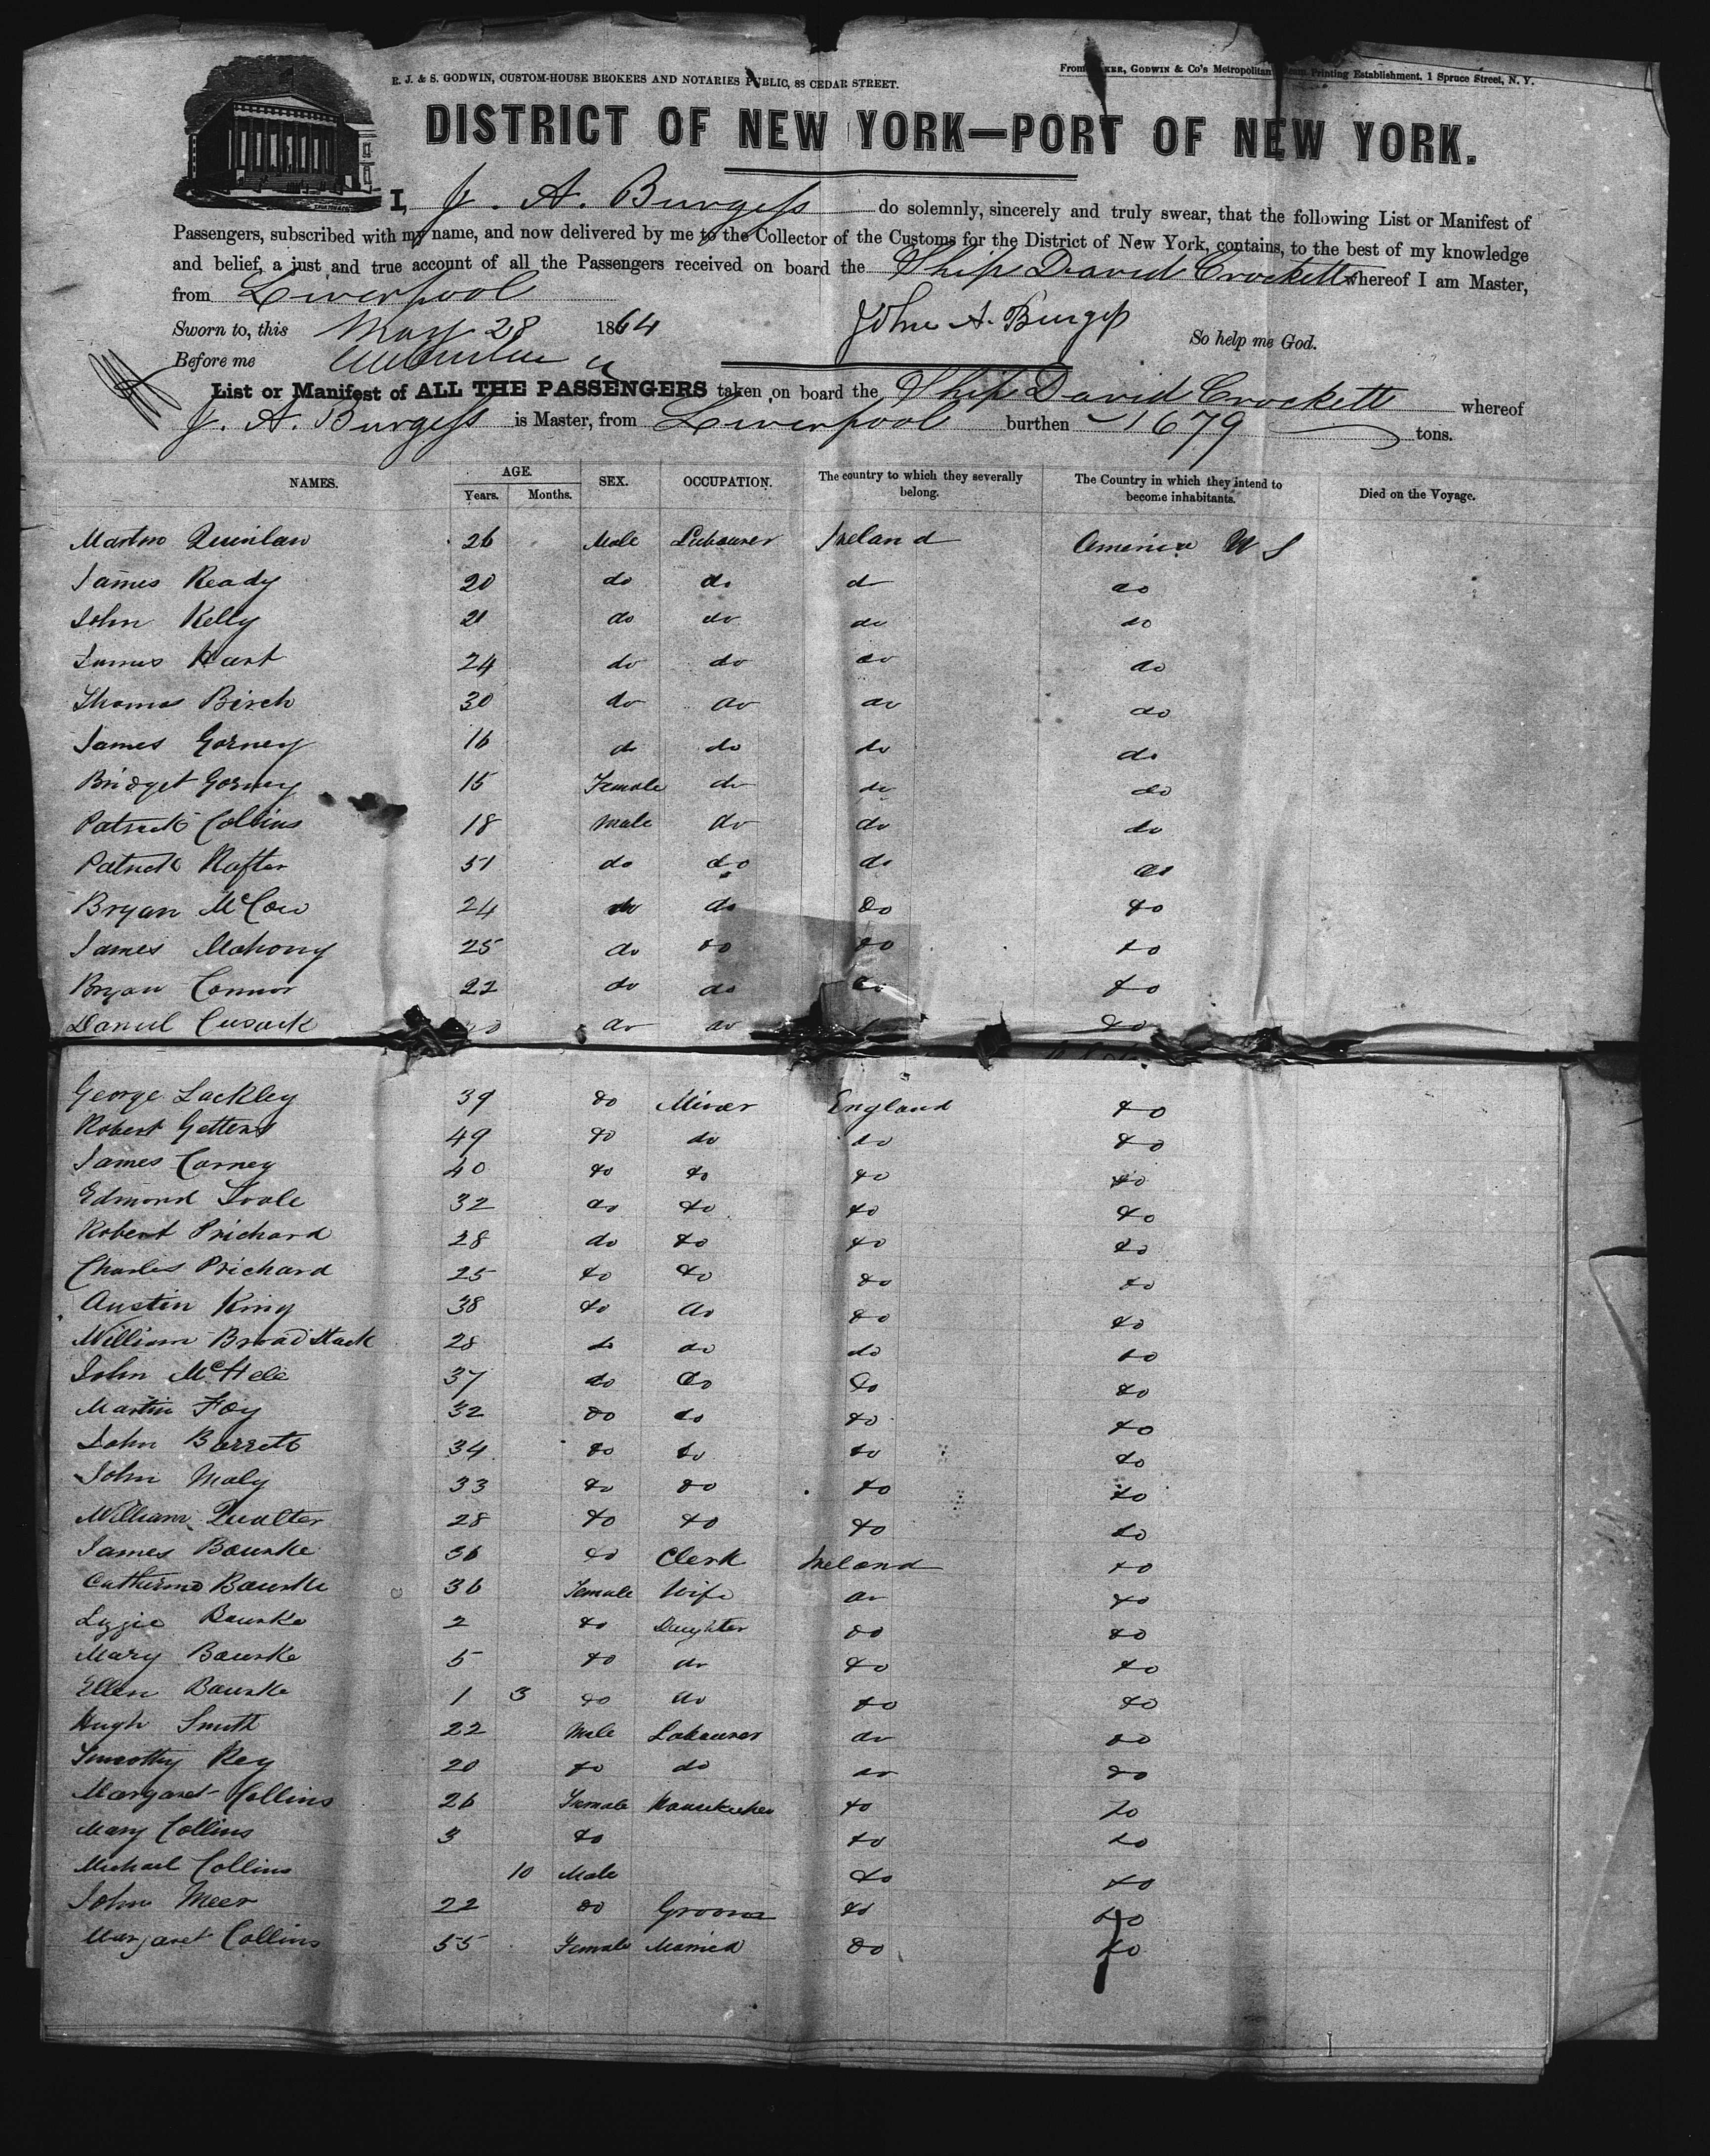 R. J. & S. GODWIN, CUSTOM-HOUSE BROKERS AND NOTARIES PUBLIC, 88 CEDAR STREET.
From BAKER, GODWIN & Co's Metropolitan Steam Printing Establishment, 1 Spruce Street, N. Y.
DISTRICT OF NEW YORK—PORT OF NEW YORK.
I, J. A. Burgess do solemnly, sincerely and truly swear, that the following List or Manifest of
Passengers, subscribed with my name, and now delivered by me to the Collector of the Customs for the District of New York, contains, to the best of my knowledge
and belief, a just and true account of all the Passengers received on board the Ship David Crockett whereof I am Master,
from Liverpool
Sworn to, this May 28 1864 John A. Burgess So help me God.
Before me
List or Manifest of ALL THE PASSENGERS taken on board the Ship David Crockett whereof
J. A. Burgess is Master, from Liverpool burthen 1679 tons.
NAMES. AGE. Years. Months. SEX. OCCUPATION. The country to which they severally belong. The Country in which they intend to become inhabitants. Died on the Voyage.
Martin Quinlan 26 Male Labourer Ireland America U S
James Ready 20 do do do do
John Kelly 21 do do do do
James Hart 24 do do do do
Thomas Birch 30 do do do do
James Gorney 16 do do do do
Bridget Gorney 15 Female do do do
Patrick Collins 18 Male do do do
Patrick Rafter 51 do do do do
Bryan McCow 24 do do do do
James Mahony 25 do do do do
Bryan Connor 22 do do do do
Daniel Cusack do do do
George Lackley 39 do Miner England do
Robert Gettens 49 do do do do
James Carney 40 do do do do
Edmond Toole 32 do do do do
Robert Prichard 28 do do do do
Charles Prichard 25 do do do do
Austin King 38 do do do do
William Broadstack 28 do do do do
John McHele 37 do do do do
Martin Foy 32 do do do do
John Barrett 34 do do do do
John Maly 33 do do do do
William Qualter 28 do do do do
James Bourke 36 do Clerk Ireland do
Catherine Bourke 36 Female Wife do do
Lizzie Bourke 2 do Daughter do do
Mary Bourke 5 do do do do
Ellen Bourke 1 3 do do do do
Hugh Smith 22 Male Labourer do do
Timothy Key 20 do do do do
Margaret Collins 26 Female Housekeeper do do
Mary Collins 3 do do do
Michael Collins 10 Male do do
John Meer 22 do Groom do do
Margaret Collins 55 Female Married do do